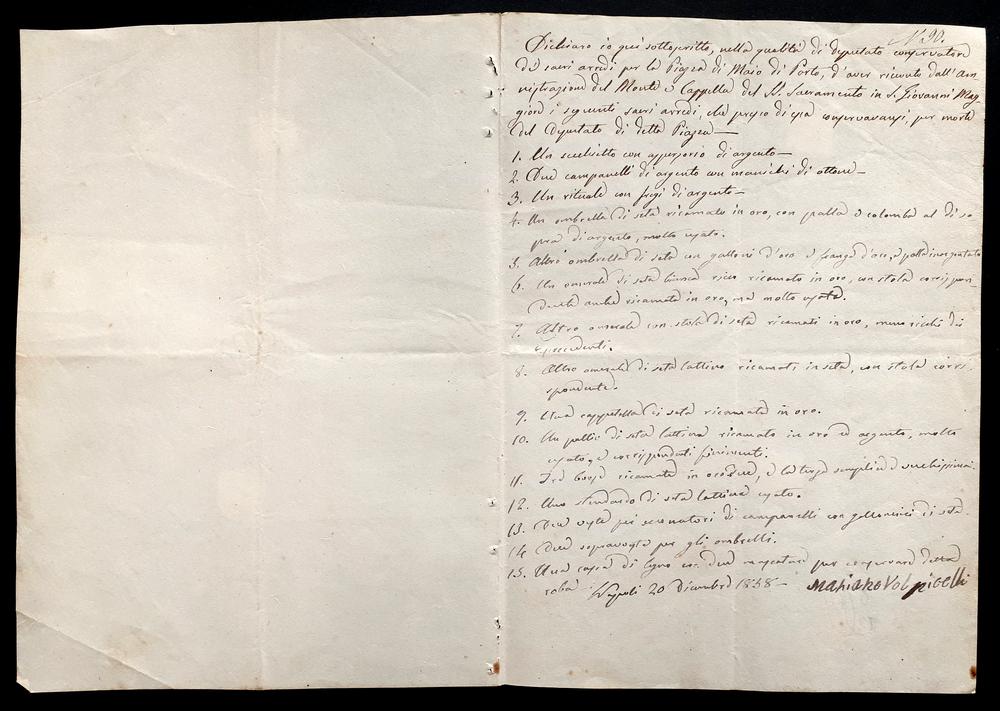 N. 90.
Dichiaro io qui sottoscritto, nella qualità di deputato conservatore
de' sacri arredi per la Piazza di Maio di Porto, d'aver ricevuto dall'Am-
ministrazione del Monte e Cappella del SS. Sacramento in S. Giovanni Mag-
giore i seguenti sacri arredi, che presso di essa conservavansi, per morte
del Deputato di detta Piazza—
1. Un secchietto con aspersorio di argento—
2. Due campanelli di argento con manichi di ottone—
3. Un rituale con fregi di argento—
4. Un ombrella di seta ricamato in oro, con palla e colomba al di so-
pra di argento, molto usato.
5. Altro ombrella di seta con galloni d'oro e frangia d'oro, e palla inargentata
6. Un omerale di seta bianca ricamato in oro, con stola corrispon-
dente anche ricamata in oro, ma molto usata.
7. Altro omerale con stola di seta ricamati in oro, meno ricchi dei
precedenti.
8. Altro omerale di seta lattino ricamati in seta, con stola corri-
spondente.
9. Una cappetella di seta ricamata in oro.
10. Un pallio di seta lattina ricamato in oro ed argento, molto
usato, e corrispondenti finimenti.
11. Tre borse ricamate in oro due, e la terza semplice e vecchissima.
12. Uno stendardo di seta lattina usato.
13. Due veste pei suonatori di campanelli con galloncini di seta.
14. Due sopraveste per gli ombrelli.
15. Una cassa di legno con due per conservare detta
roba Napoli 20 dicembre 1858— Mariano Volpicelli